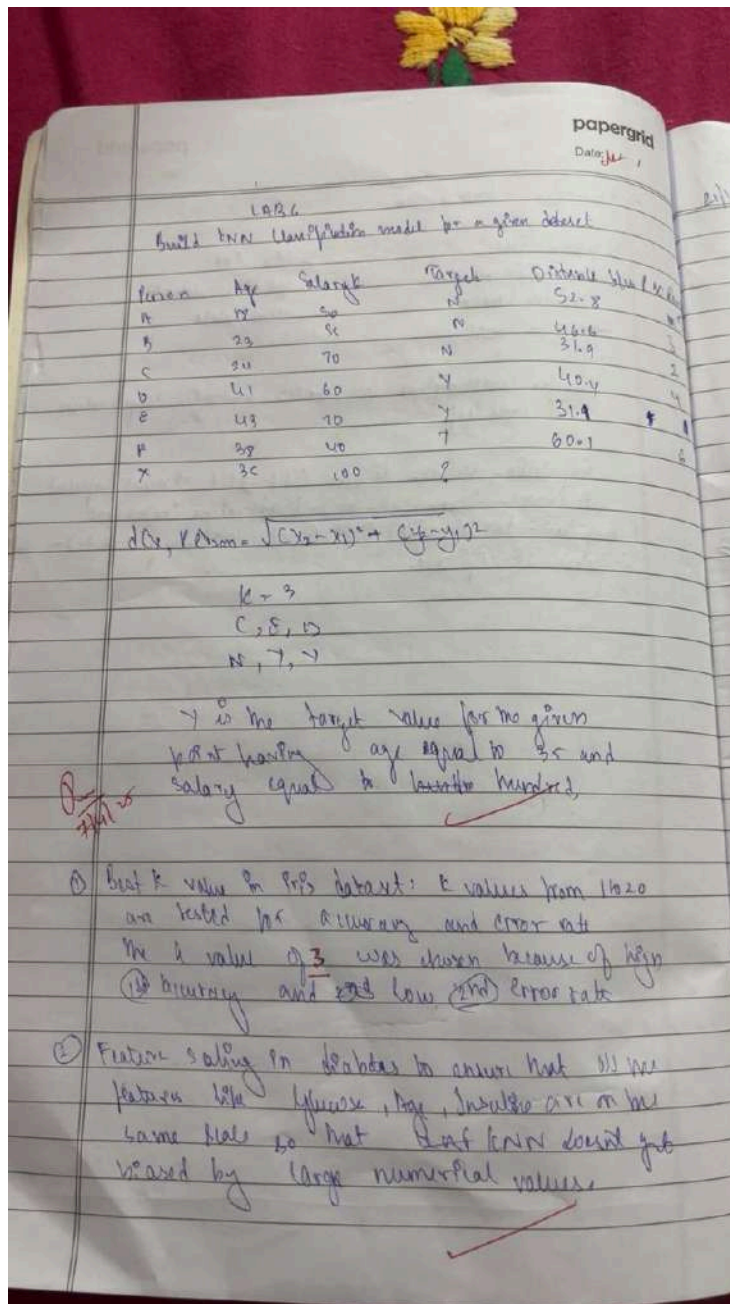 papergrid
Date:
LAB 6
Build KNN Classification model for a given dataset
Person Age Salary K Target Distance
A 18 50 N 52.8
B 23 N 46.6
C 24 70 N 31.9 2
D 41 60 Y 40.4
E 43 70 Y 31.1 1
F 38 40 Y 60.1 6
X 35 100 ?
d(x, Person = √(x₂-x₁)² + (y₂-y₁)²
K = 3
C, E, D
N, Y, Y
Y is the target value for the given
point having age equal to 35 and
salary equal to hundred,
① Best K value in Iris dataset: K values from 1 to 20
are tested for accuracy and error rate
The k value of 3 was chosen because of high
1st accuracy and low 2nd error rate
② Feature scaling in diabetes to ensure that all the
features like Glucose, Age, Insulin are on the
same scale so that KNN doesn't get
biased by large numerical values.